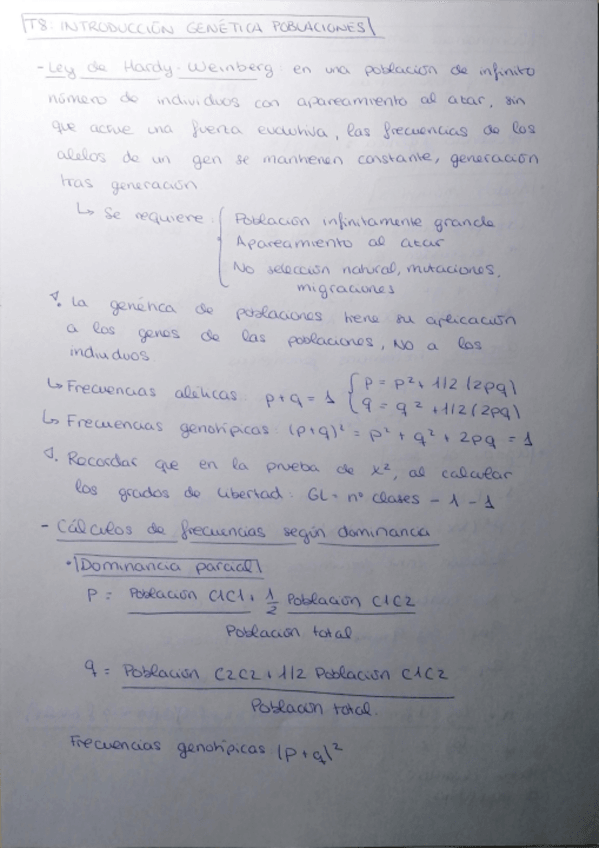 T8. INTRODUCCIÓN GENÉTICA POBLACIONES
- Ley de Hardy-Weinberg: en una población de infinito
número de individuos con apareamiento al azar, sin
que actúe una fuerza evolutiva, las frecuencias de los
alelos de un gen se mantienen constante, generación
tras generación
↳ Se requiere: { Población infinitamente grande
Apareamiento al azar
No selección natural, mutaciones,
migraciones
. La genética de poblaciones tiene su aplicación
a los genes de las poblaciones, NO a los
individuos.
↳ Frecuencias alélicas: p+q = 1 { p = p² + 1/2 (2pq)
q = q² + 1/2 (2pq)
↳ Frecuencias genotípicas: (p+q)² = p² + q² + 2pq = 1
. Recordar que en la prueba de x², al calcular
los grados de libertad: GL = nº clases - 1 - 1
- Cálculos de frecuencias según dominancia
· Dominancia parcial
P = Población C1C1 + 1/2 Población C1C2
Población total
q = Población C2C2 + 1/2 Población C1C2
Población total.
Frecuencias genotípicas (p+q)²